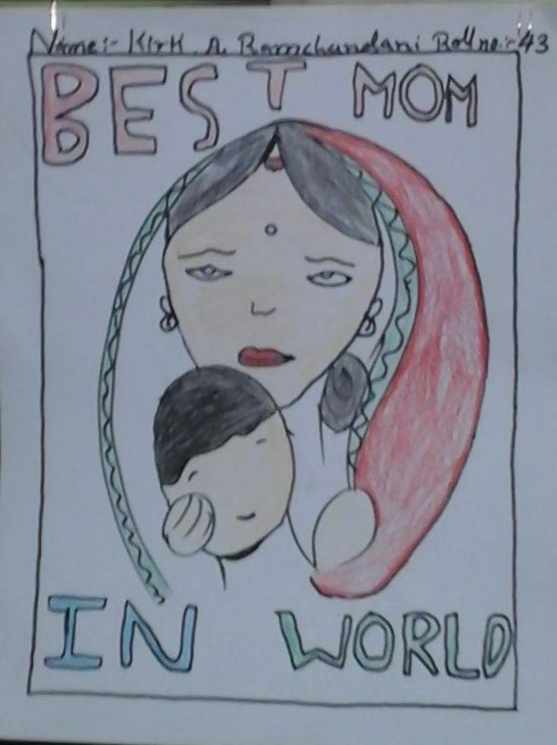 Name:- Kirti. A. Ramchandani Roll no.:- 43
BEST MOM
IN WORLD